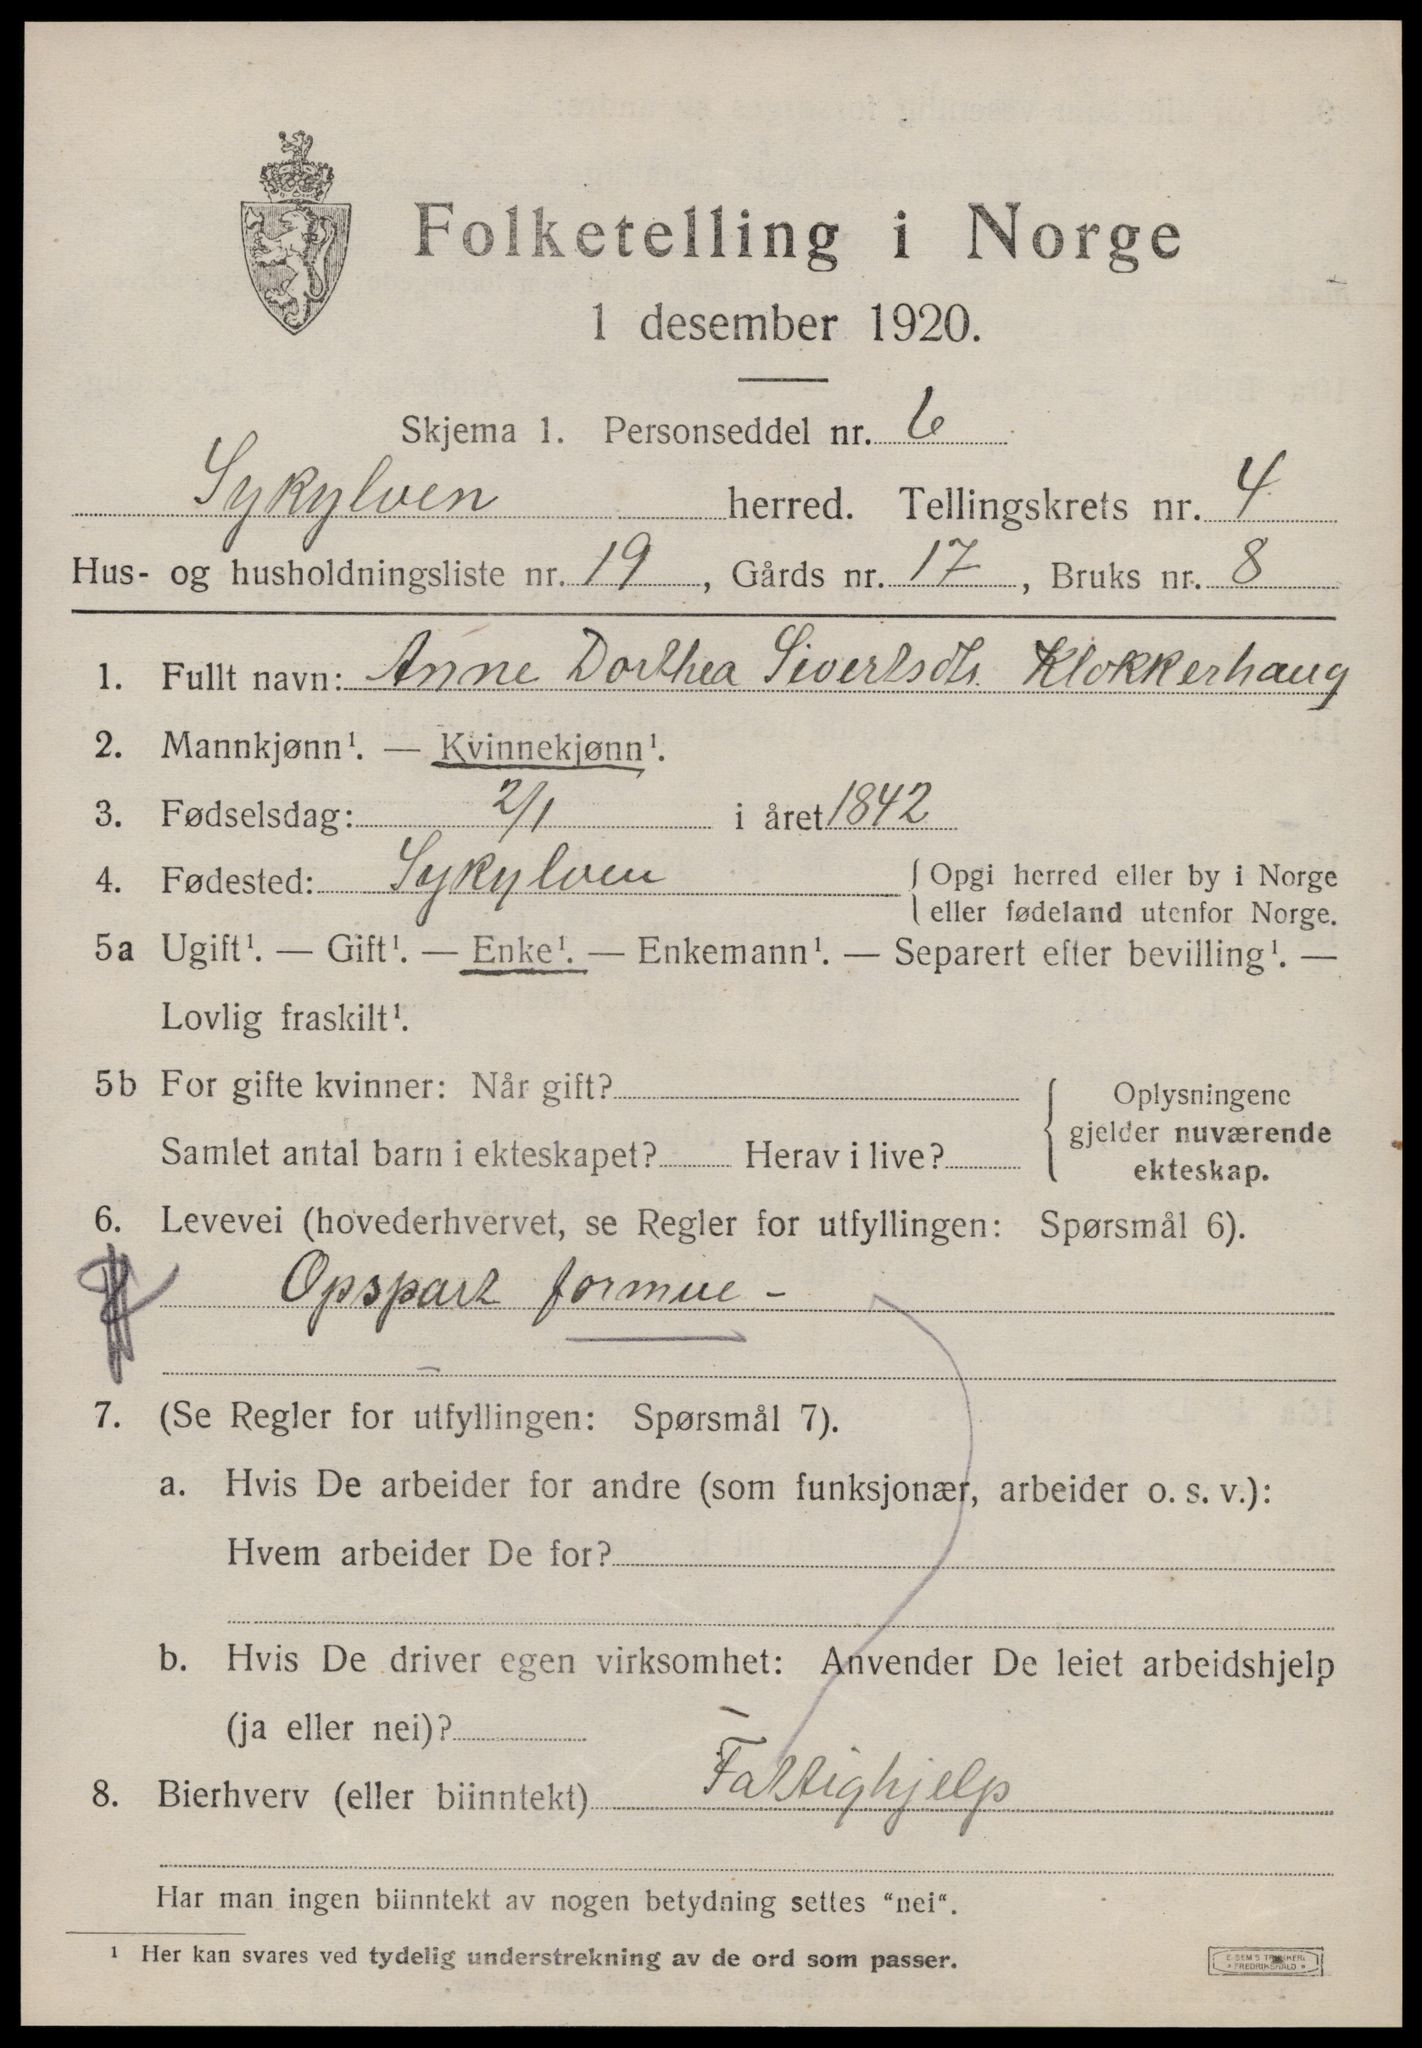 Folketelling i Norge
1 desember 1920.
Skjema 1. Personseddel nr. 6
Sykylven herred. Tellingskrets nr. 4
Hus- og husholdningsliste nr. 19, Gårds nr. 17, Bruks nr. 8
1. Fullt navn: Anne Dorthea Sivertsdtr. Klokkerhaug
2. Mannkjønn¹. — Kvinnekjønn¹.
3. Fødselsdag: 2/1 i året 1842
4. Fødested: Sykylven { Opgi herred eller by i Norge
eller fødeland utenfor Norge.
5a Ugift¹. — Gift¹. — Enke¹. — Enkemann¹. — Separert efter bevilling¹. —
Lovlig fraskilt¹.
5b For gifte kvinner: Når gift? { Oplysningene
gjelder nuværende
Samlet antal barn i ekteskapet? Herav i live?
ekteskap.
6. Levevei (hovederhvervet, se Regler for utfyllingen: Spørsmål 6).
Opspart formue -
7. (Se Regler for utfyllingen: Spørsmål 7).
a. Hvis De arbeider for andre (som funksjonær, arbeider o. s. v.):
Hvem arbeider De for?
b. Hvis De driver egen virksomhet: Anvender De leiet arbeidshjelp
(ja eller nei)?
8. Bierhverv (eller biinntekt) Fattighjelp
Har man ingen biinntekt av nogen betydning settes "nei".
¹ Her kan svares ved tydelig understrekning av de ord som passer.
FREDRIKSHALD